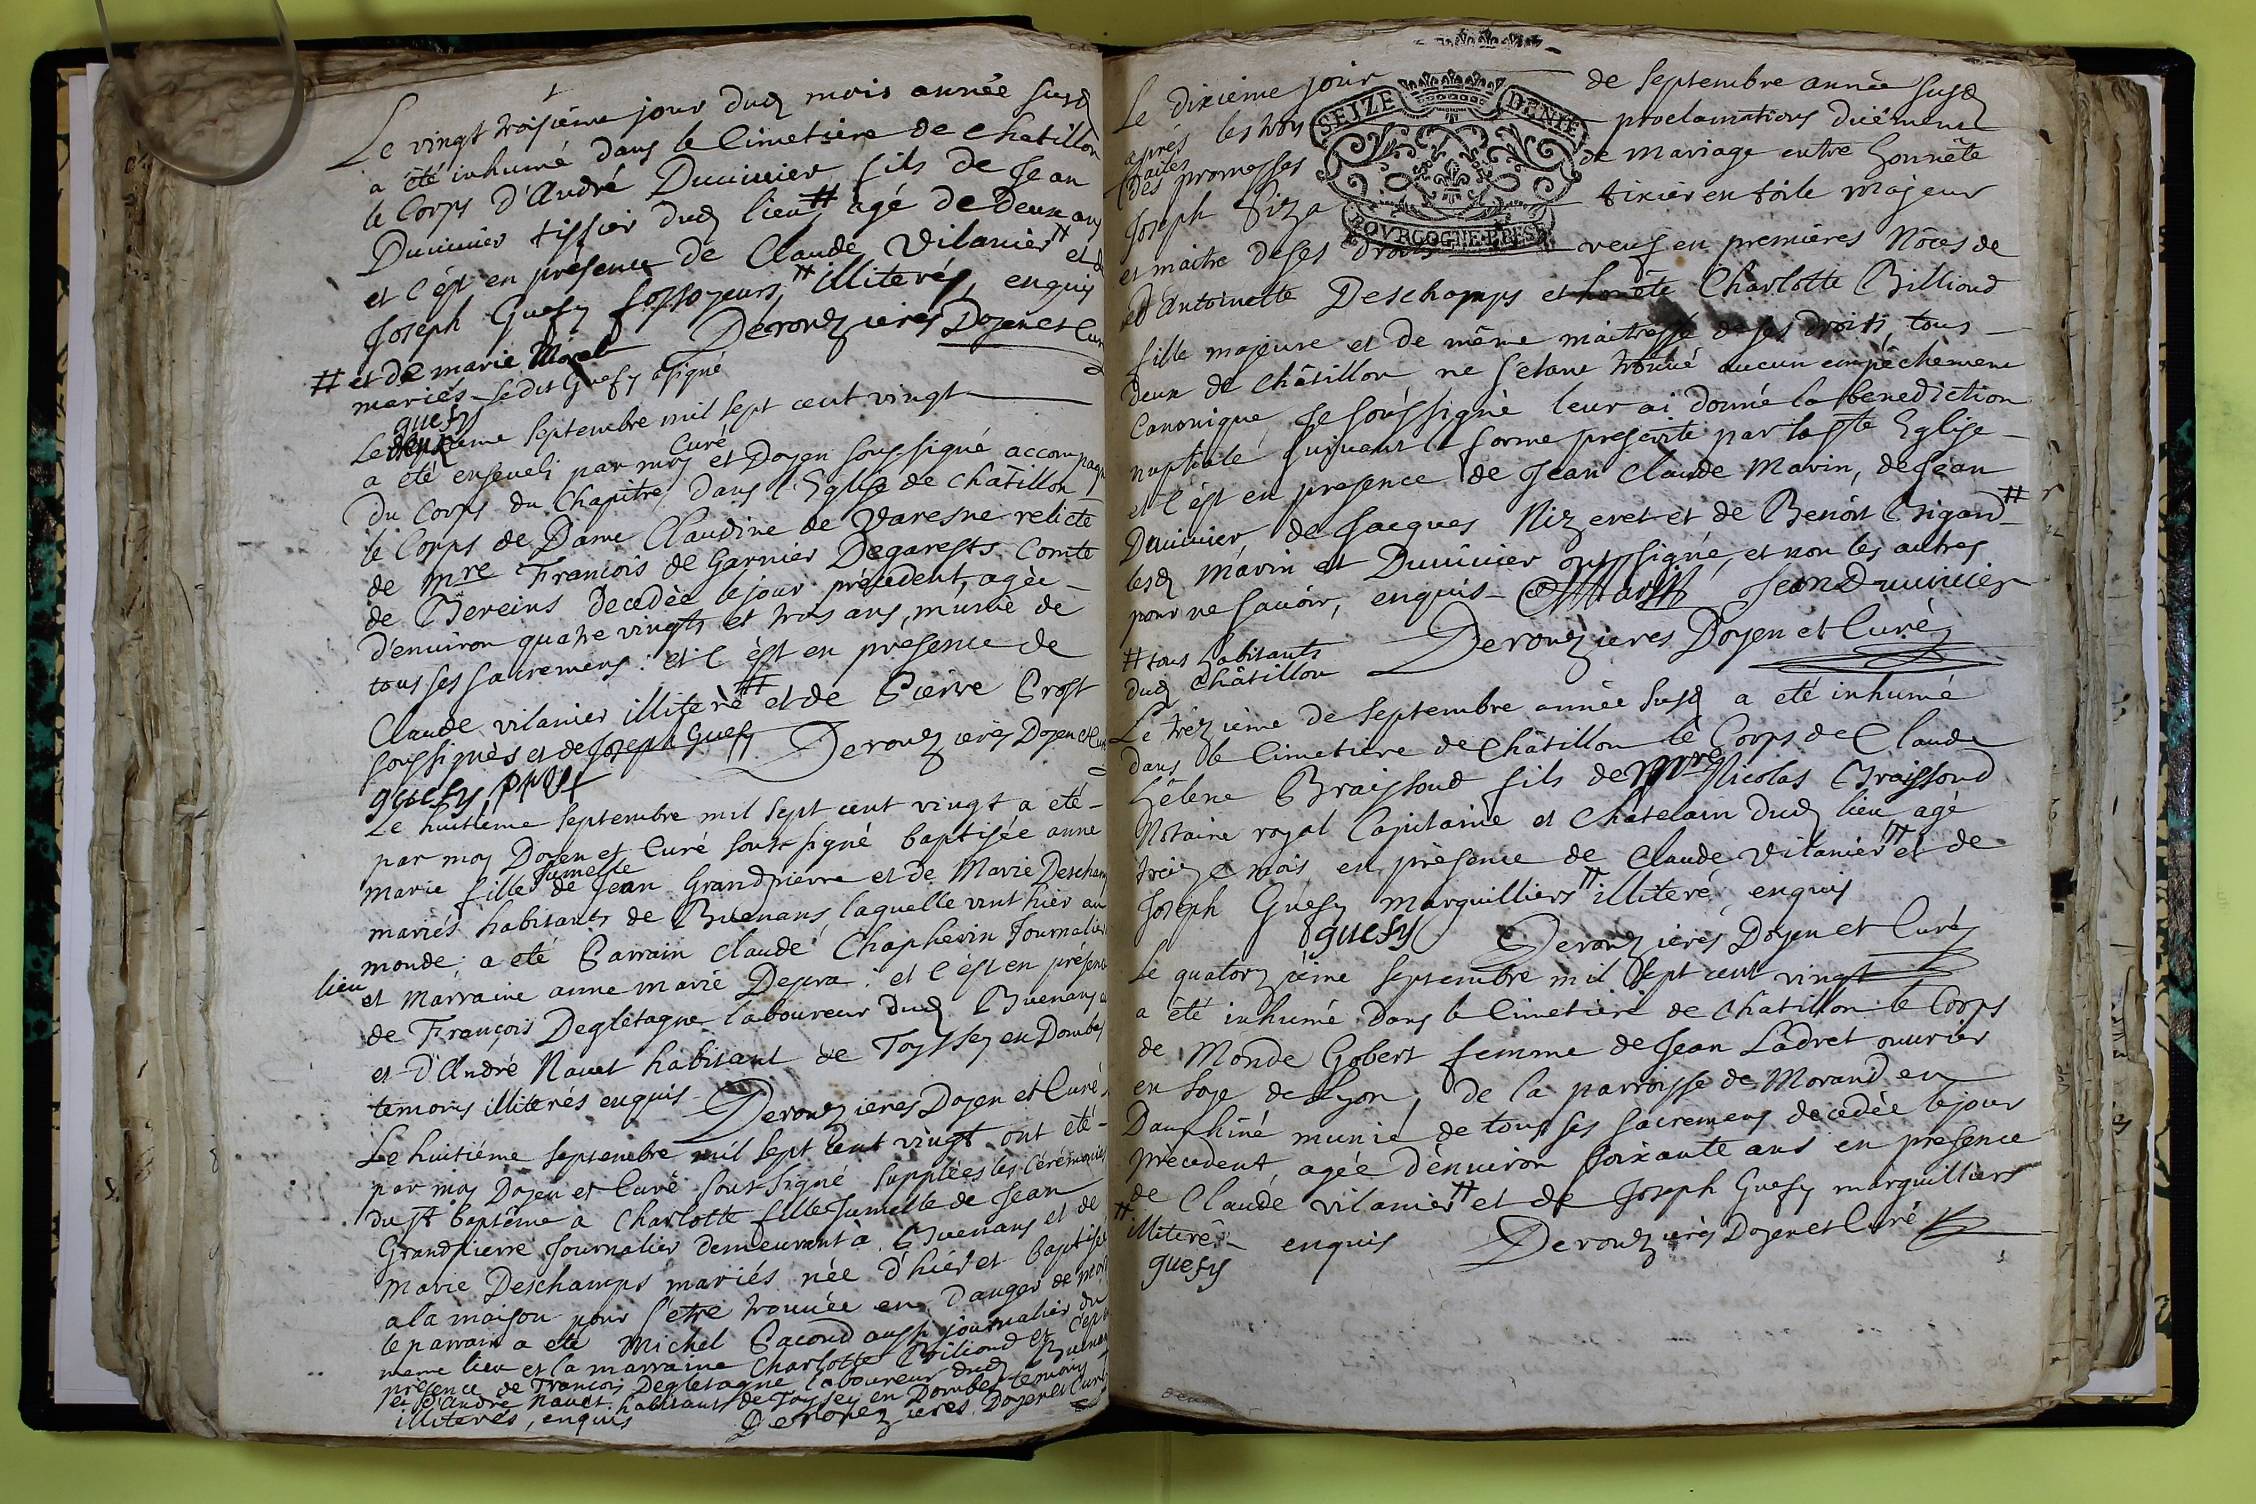 Le vingt troisiéme jour dud mois année susd
a été inhumé dans le Cimetiere de Chatillon
le Corps d'André Duuiuier fils de Jean
Duuiuier tissier dud lieu # agé de Deux ans
et c'est en présence de Claude Vilanier # et de
Joseph Guefy fossoyeurs, # illiterés, enquis
Derouzieres Doyen et Curé
# et de marie Morel
mariés ledit Guefy a signé
guefy
Le deuxieme Septembre mil sept cent vingt
a été enseueli par moy Curé et Doyen soussigné accompagné
du Corps du Chapitre, dans l'Eglise de Chatillon
le Corps de Dame Claudine de Varesne relicte
de Mre François de Garnier Degarests Comte
de Bereins decedée le jour précedent, agée
d'enuiron quatre vingts et trois ans, munie de
tous ses sacremens : et c'est en presence de
Claude vilanier illiteré # et de Pierre Prost
soussignés et de Joseph Guefy Derouzieres Doyen et Curé
guefy, prost
Le huitieme Septembre mil sept cent vingt a eté
par moy Doyen et Curé soussigné baptisée anne
marie fille Jumelle de Jean Grandpierre et de Marie Deschamps
mariés habitants de Buenans, laquelle vint hier au
monde ; a eté Parrain Claude Chapheuin Journalier
et Marraine anne marie Depra : et c'est en présence
lieu
de François Degletagne laboureur dud Buenans et
et d'André Nauet habitant de Toyssey en Dombes
temoins illiterés enquis Derouzieres Doyen et Curé
Le huitiéme Septembre mil sept cent vingt ont eté
par moy Doyen et Curé soussigné supplées les Cérémonies
du st baptême à Charlotte fille Jumelle de Jean
Grandpierre Journalier demeurant à Buenans et de
Marie Deschamps mariés née d'hier et baptisée
a la maison pour s'etre trouuée en danger de mort
le parrain a eté Michel Pacoud aussy journalier du
meme lieu et la marraine Charlotte Billioud et c'est en
présence de François Degletagne laboureur dud Buenans
et d'André Nauet habitant de Toyssey en Dombes temoins
illiterés, enquis Derouzieres Doyen et Curé
SEIZE DENIE
BOVRGOGNE BRESSE
Le dixiéme jour de Septembre année susd
aprés les trois proclamations düement
faites des promesses de Mariage entre honnête
Joseph Piza tixier en toile majeur
et maitre de ses droits veuf en premières Nôces de
d'antoinette Deschamps et honête Charlotte Billioud
fille majeure et de même maitresse de ses droits, tous
deux de Châtillon ne s'etant trouué aucun empêchement
Canonique Je soussigné leur ai donné la benediction
nuptiale suiuant la forme prescrite par la ste Eglise
et c'est en presence de Jean Claude Marin, de Jean
Duuiuier de Jacques Nizeret et de Benoit Brigand #
lesd Marin et Duuiuier ont signé, et non les autres
pour ne sauoir, enquis CMarin Jean Duuiuier
# tous habitants
dud Châtillon Derouzieres Doyen et Curé
Le treizième de Septembre année susd a eté inhumé
dans le Cimetiere de Châtillon le Corps de Claude
Hélene Braissoud fils de Mre Nicolas Braissoud
Notaire royal Capitaine et Châtelain dud lieu agé
treize mois en présence de Claude Vilanier # et de
Joseph Guefy marguilliers # illiteré, enquis
guefy Derouzieres Doyen et Curé
Le quatorzième Septembre mil sept cent vingt
a été inhumé dans le Cimetiere de Chatillon le Corps
de Monde Gobert femme de Jean Ladret ouurier
en soye de Lyon, de la parroisse de Morand en
Dauphiné munie de tous ses sacremens decedée le jour
précedent, agée d'enuiron soixante ans en presence
de Claude vilanier # et de Joseph Guefy marguilliers
# illiteré enquis Derouzieres Doyen et Curé
guefy